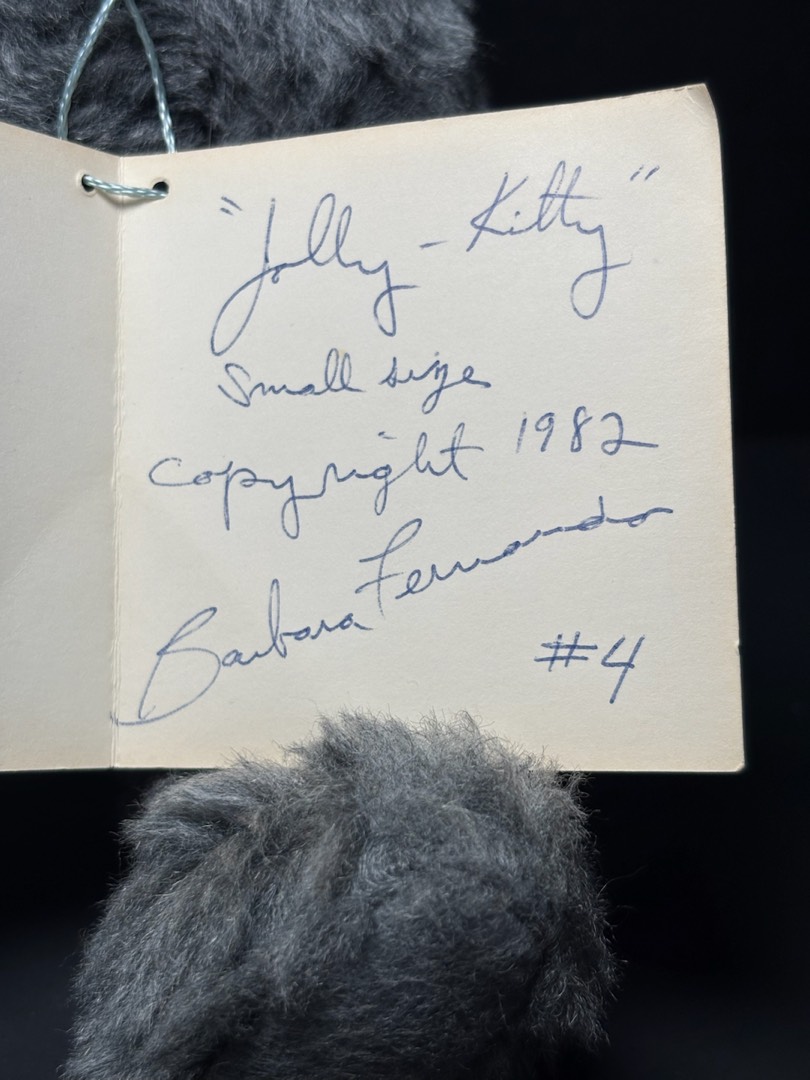 "Jolly - Kitty"
Small size
copyright 1982
Barbara Fernando
#4